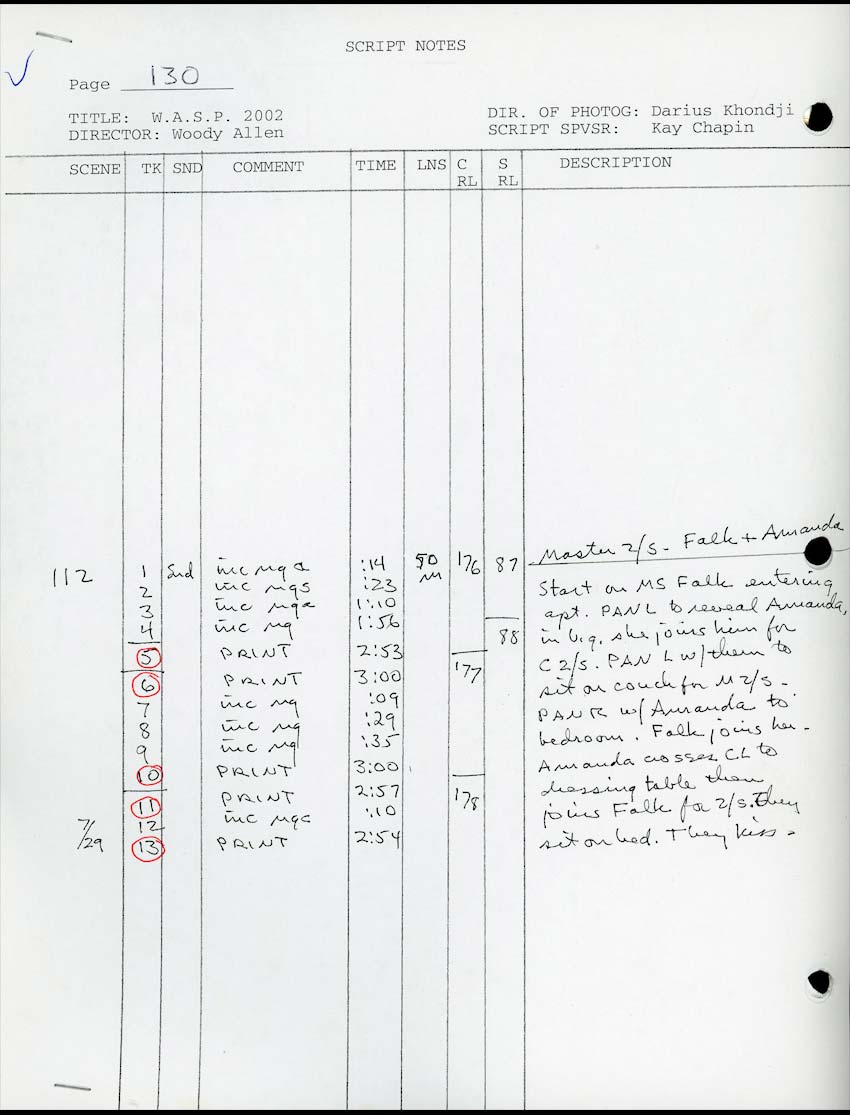 SCRIPT NOTES
Page 130
TITLE: W.A.S.P. 2002 DIR. OF PHOTOG: Darius Khondji
DIRECTOR: Woody Allen SCRIPT SPVSR: Kay Chapin
SCENE TK SND COMMENT TIME LNS C RL S RL DESCRIPTION
Master 2/S - Falk + Amanda
112 1 Snd inc :14 50 176 87
2 inc :23 Start on MS Falk entering
3 inc 1:10 apt. PAN L to reveal Amanda,
4 inc ng 1:56 88 in b.g. she joins him for
5 PRINT 2:53 C 2/S. PAN L w/them to
6 PRINT 3:00 177 sit on couch for M 2/S -
7 inc ng :09 PAN R w/ Amanda to
8 inc ng :29 bedroom. Falk joins her -
9 inc ng :35 Amanda crosses C.L to
10 PRINT 3:00 dressing table then
11 PRINT 2:57 178 joins Falk for 2/S. They
12 inc :10 sit on bed. They kiss -
7/29 13 PRINT 2:54